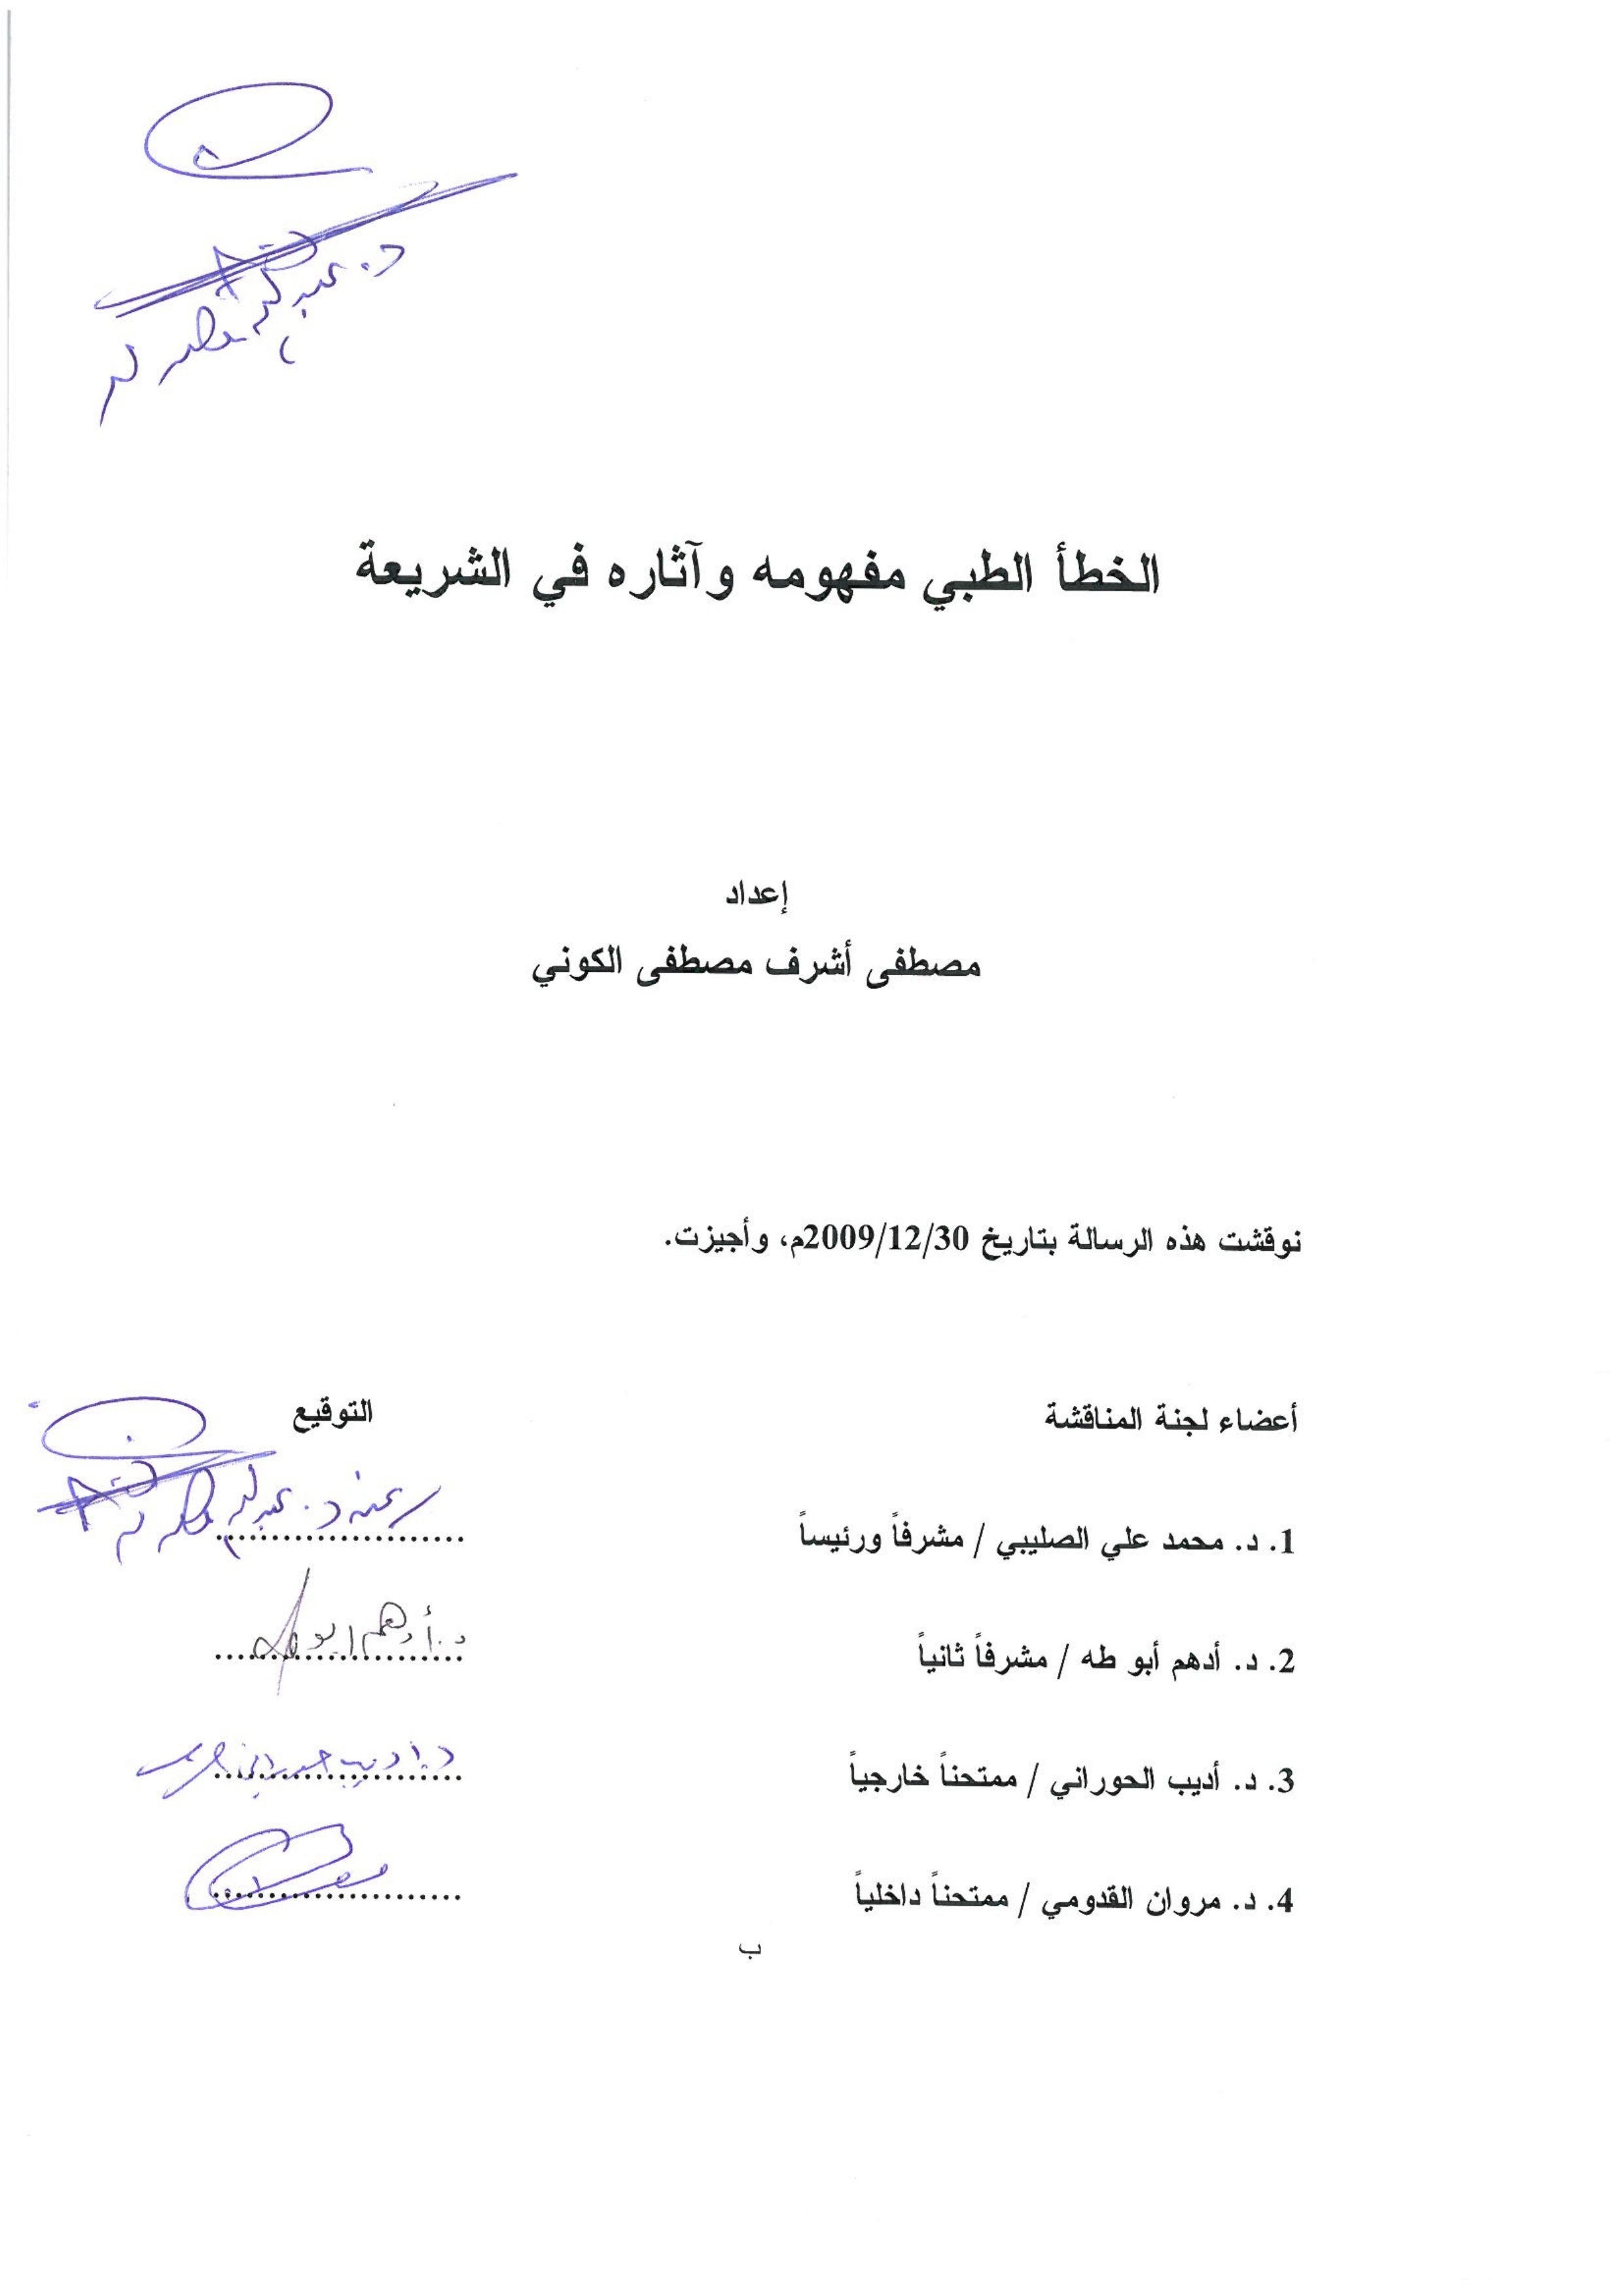 الخطأ الطبي مفهومه وآثاره في الشريعة
إعداد
مصطفى أشرف مصطفى الكوني
نوقشت هذه الرسالة بتاريخ 2009/12/30م، وأجيزت.
أعضاء لجنة المناقشة التوقيع
1. د. محمد علي الصليبي / مشرفاً ورئيساً ......................
2. د. أدهم أبو طه / مشرفاً ثانياً ...................... د. أدهم أبو طه
3. د. أديب الحوراني / ممتحناً خارجياً ...................... د. أديب
4. د. مروان القدومي / ممتحناً داخلياً ......................
ب